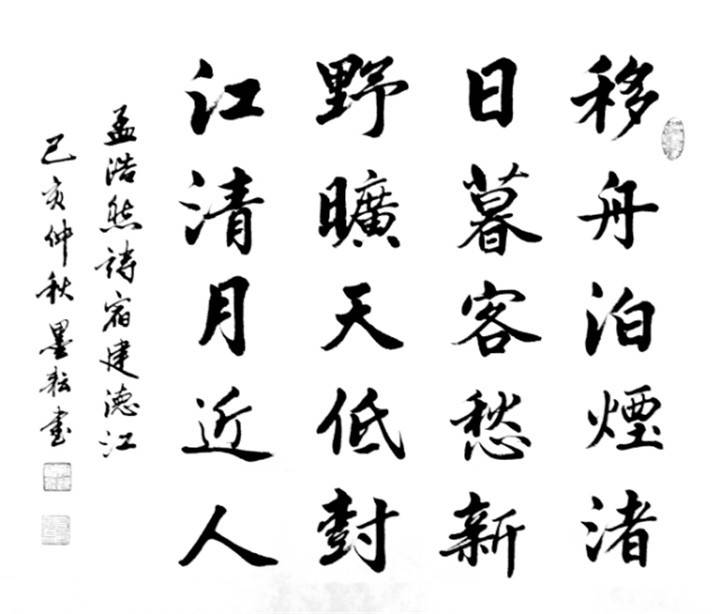 移舟泊煙渚
日暮客愁新
野曠天低樹
江清月近人
孟浩然詩宿建德江
己亥仲秋墨耘書